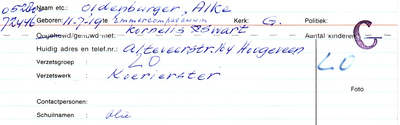 05280 Naam etc.: Oldenburger, Alke
72446 Geboren: 11-7-19 te Emmercompascuum Kerk: G. Politiek:
Ongehuwd/gehuwd met: Kornelis Swart Aantal kinderen:
G
Huidig adres en telef.nr.: Alteveerstr. 164 Hoogeveen
Verzetsgroep : LO LO
Verzetswerk : Koerierster
Foto
Contactpersonen:
Schuilnamen : Alie